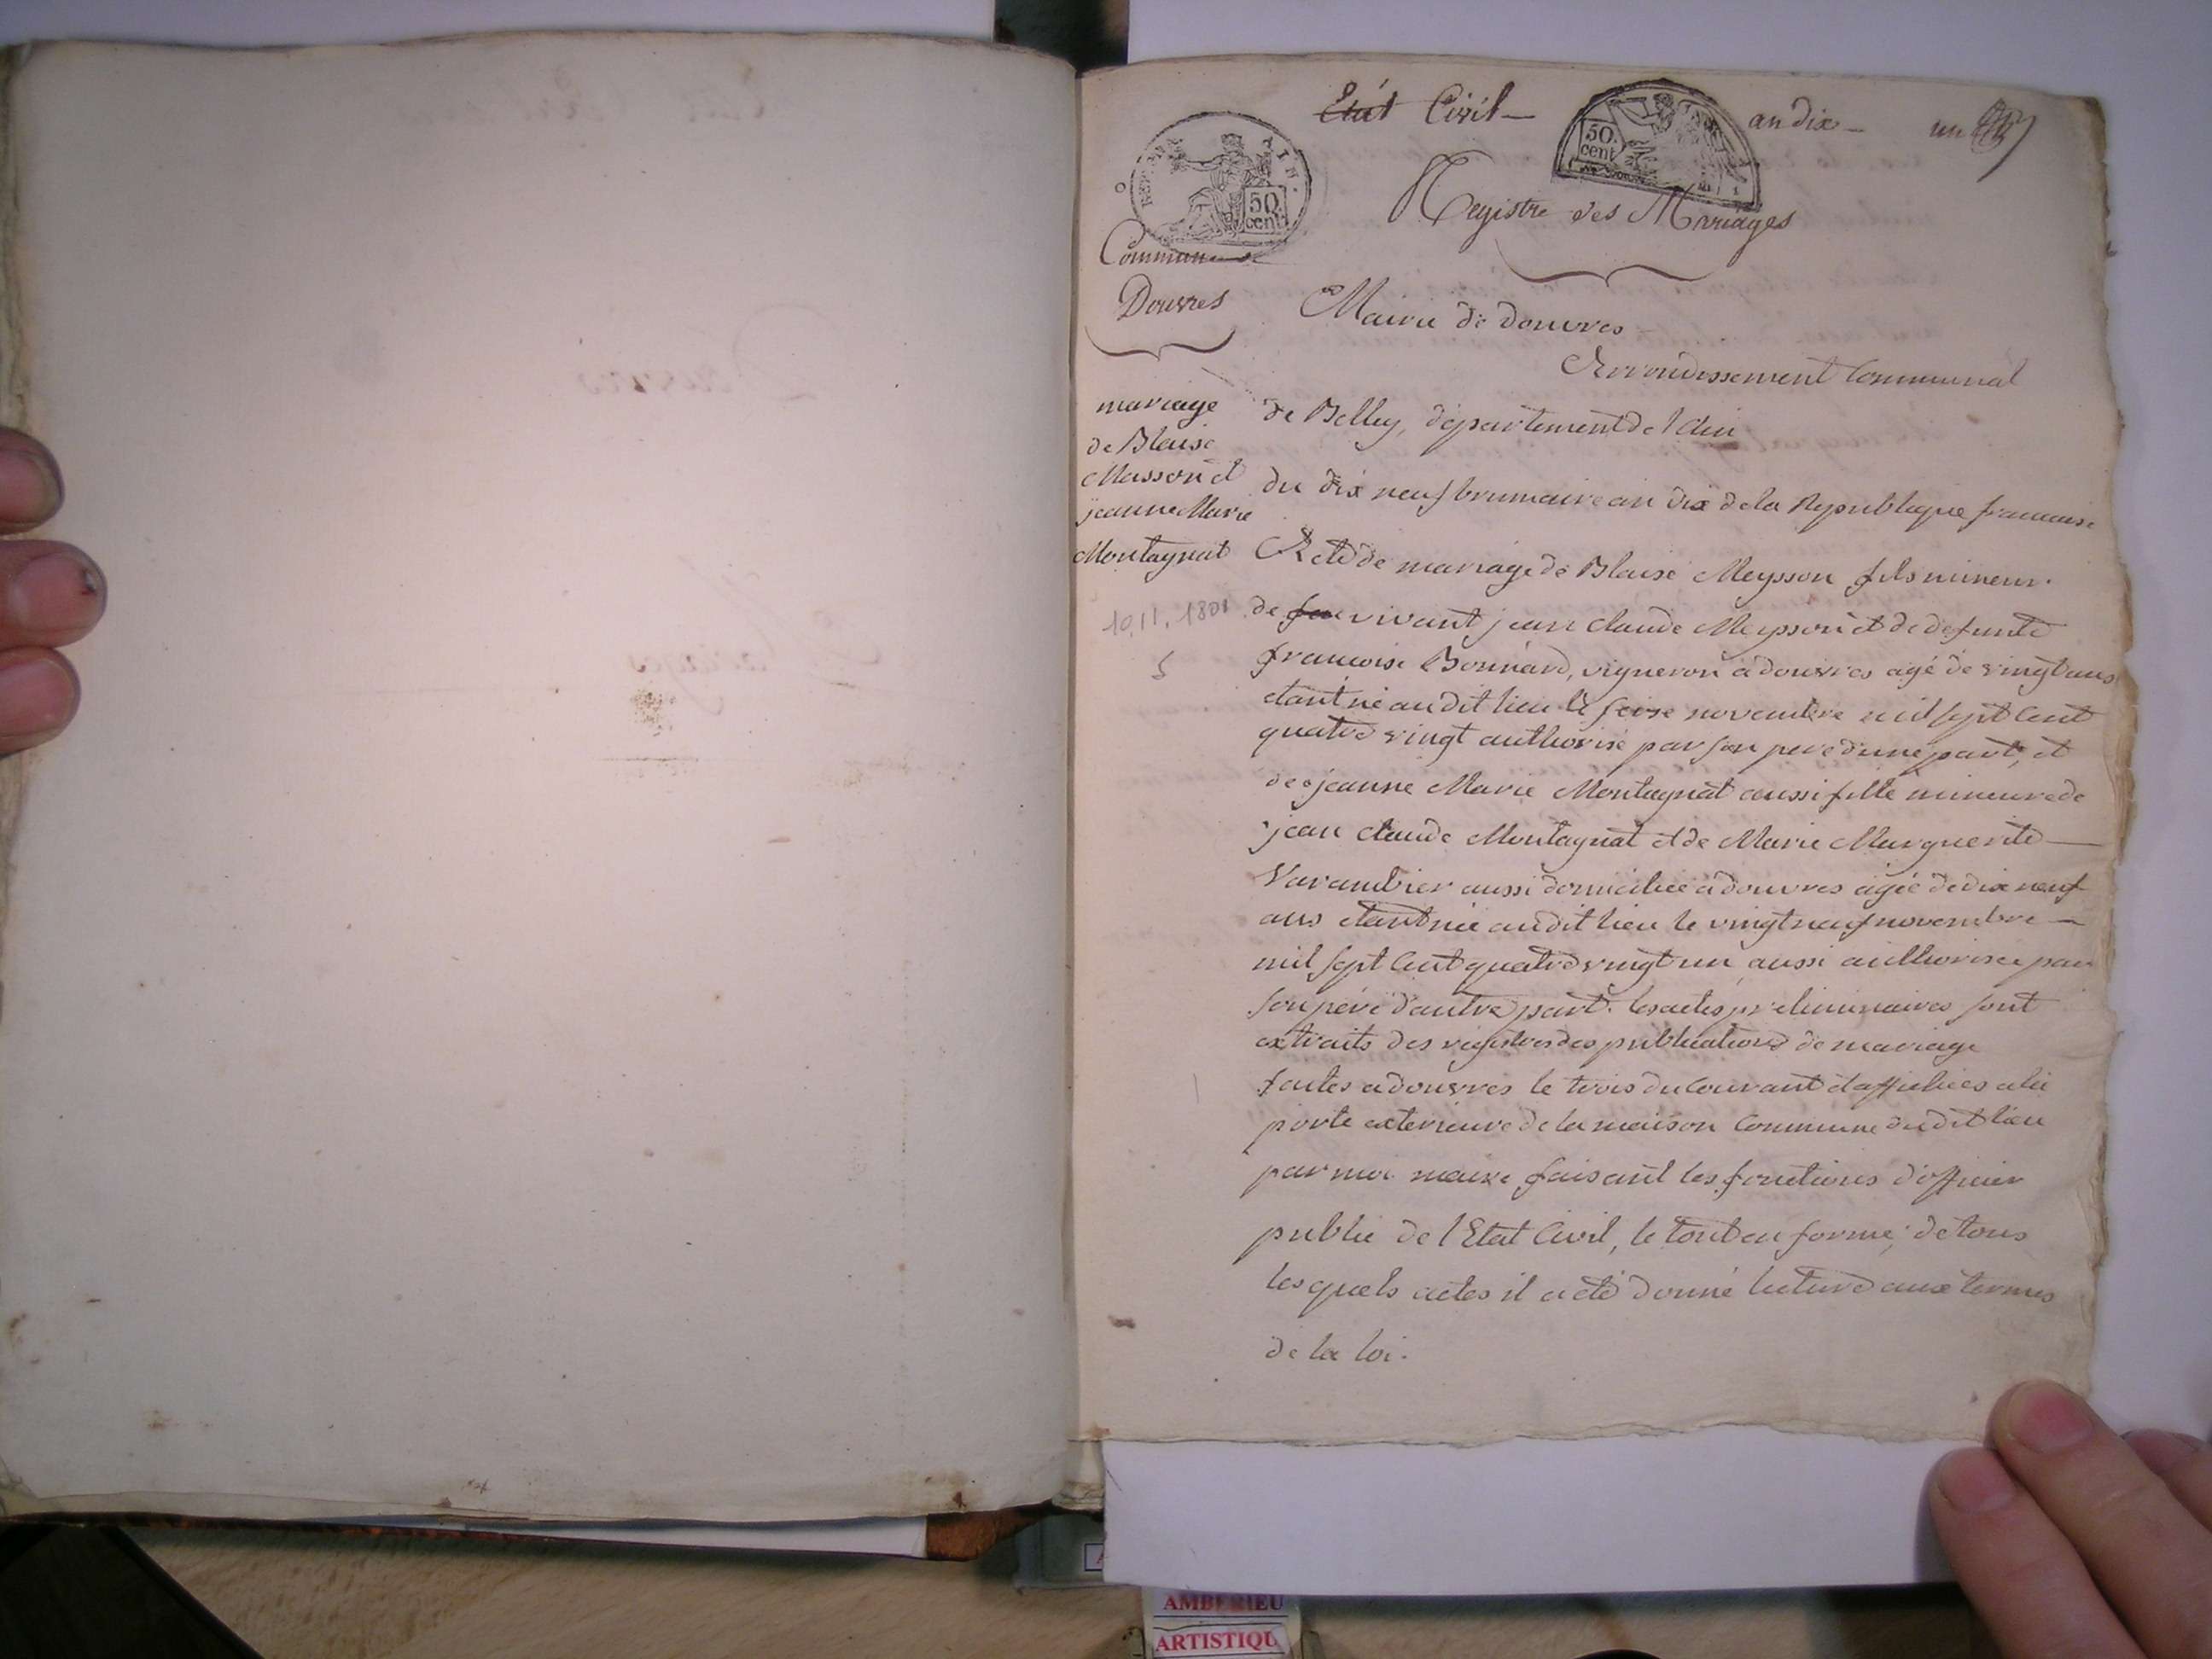 Etat Civil - an dix - un
50. cent
50. cent
Registre des Mariages
Commune de
Douvres
Mairie de douvres
Arrondissement Communal
de Belley, département de l'ain
mariage
de Blaise
Masson et
jeanne Marie
Montagnat
10.11.1801
5
du dix neuf brumaire an dix de la Republique francaise
Acte de mariage de Blaise Meysson fils mineur
de feu vivant jean claude Meysson et de defunte
francoise Bonnard, vigneron a douvres agé de vingt ans
etant né audit lieu le seize novembre mil sept Cent
quatre vingt authorisé par son pere d'une part, et
de jeanne Marie Montagnat aussi fille mineure de
jean claude Montagnat et de Marie Marguerite
Varambier aussi domiciliée a douvres agée de dix neuf
ans etant née audit lieu le vingt neuf novembre
mil sept Cent quatre vingt un aussi authorisée par
son père d'autre part. les actes préliminaires sont
extraits des registres des publications de mariage
faites a douvres le trois du Courant et affichées a la
porte exterieure de la maison Commune dudit lieu
par moi maire faisant les fonctions d'officier
public de l'Etat Civil, le tout en forme; de tous
lesquels actes il a eté donné lecture aux termes
de la loi.
AMBERIEU
ARTISTIQU